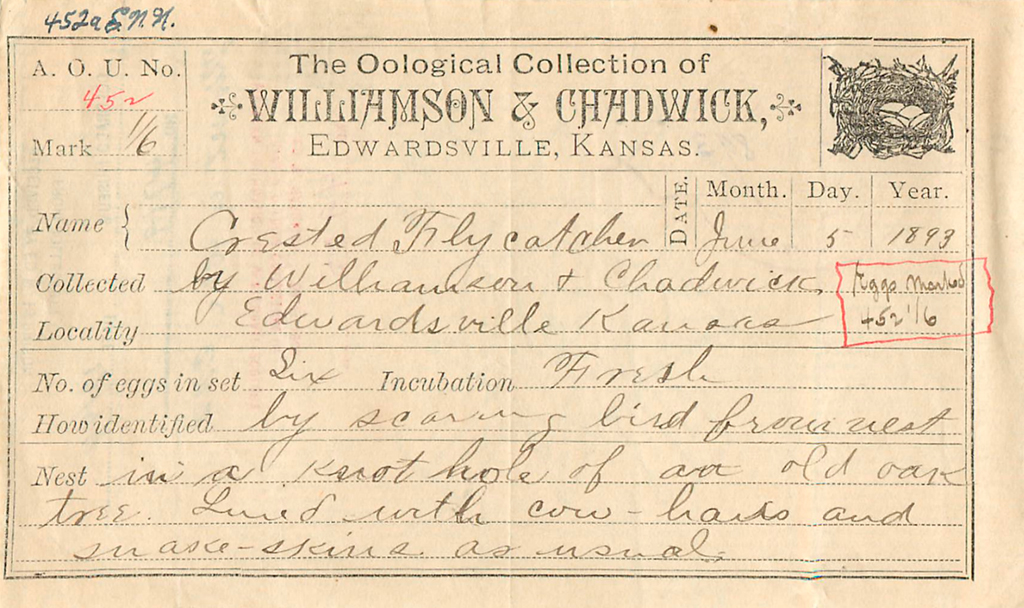 452a E.N.N.
A. O. U. No.
452
Mark 1/6
The Oological Collection of
WILLIAMSON & CHADWICK,
EDWARDSVILLE, KANSAS.
DATE. Month. Day. Year.
June 5 1893
Name { Crested Flycatcher
Collected by Williamson & Chadwick,
Locality Edwardsville Kansas
Eggs marked
452 1/6
No. of eggs in set Six Incubation Fresh
How identified by scaring bird from nest
Nest in a knot hole of an old oak
tree. Lined with cow-hairs and
snake-skins as usual.